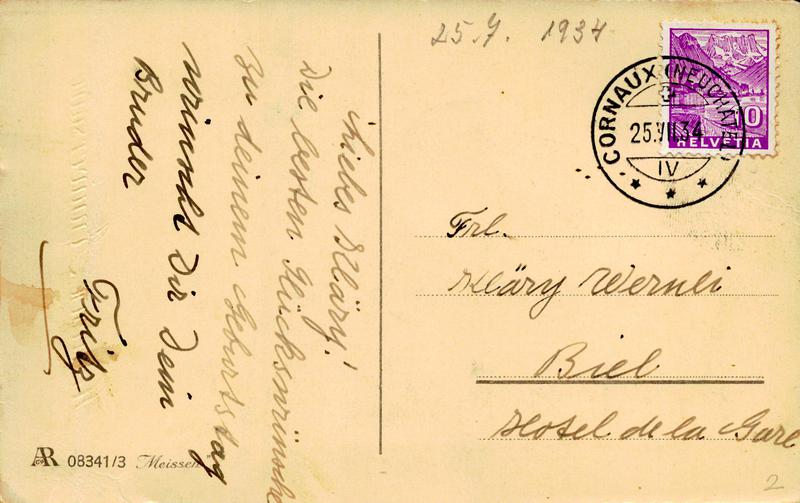 25.7. 1934
Liebes Kläry!
Die besten Glückswünsche
zu deinem Geburtstag
wünscht Dir Dein
Bruder
Fritz
CORNAUX (NEUCHÂTEL)
25.VII.34
IV
10
HELVETIA
Frl.
Kläry Wernli
Biel
Hotel de la Gare
AR 08341/3 Meissen
2